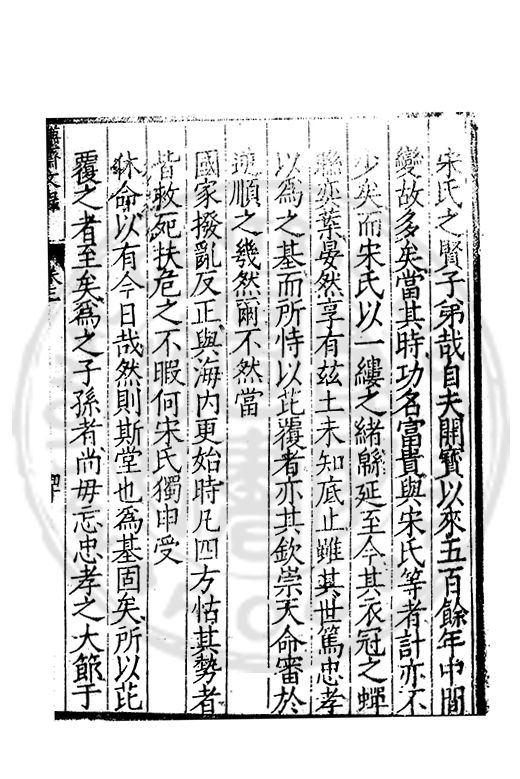 宋氏之賢子弟哉自夫開寶以來五百餘年中間
變故多矣當其時功名富貴與宋氏等者計亦不
少矣而宋氏以一縷之緒緜延至今其衣冠之蟬
聯奕葉晏然享有兹土未知底止雖其世篤忠孝
以爲之基而所恃以芘覆者亦其欽崇天命審於
逆順之幾然爾不然當
國家撥亂反正與海内更始時凡四方怙其勢者
皆救死扶危之不暇何宋氏獨申受
休命以有今日哉然則斯堂也爲基固矣所以芘
覆之者至矣爲之子孫者尚毋忘忠孝之大節于
文編 卷三